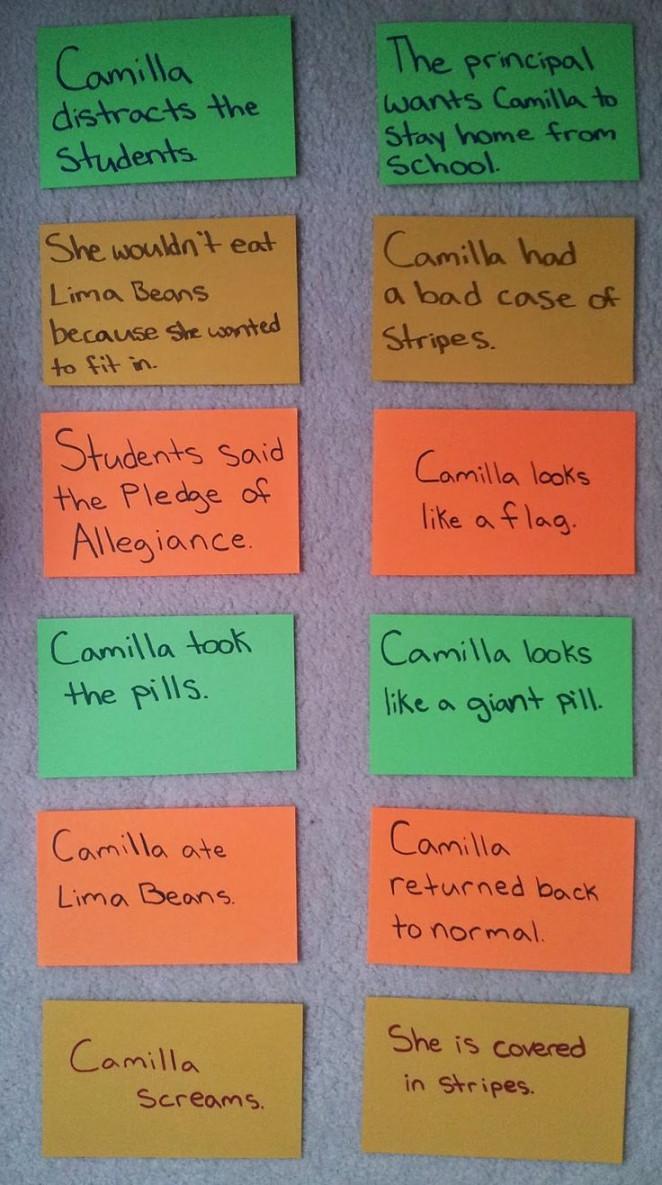 Camilla
distracts the
Students.
The principal
wants Camilla to
stay home from
school.
She wouldn't eat
Lima Beans
because she wanted
to fit in.
Camilla had
a bad case of
Stripes.
Students said
the Pledge of
Allegiance.
Camilla looks
like a flag.
Camilla took
the pills.
Camilla looks
like a giant pill.
Camilla ate
Lima Beans.
Camilla
returned back
to normal.
Camilla
screams.
She is covered
in stripes.